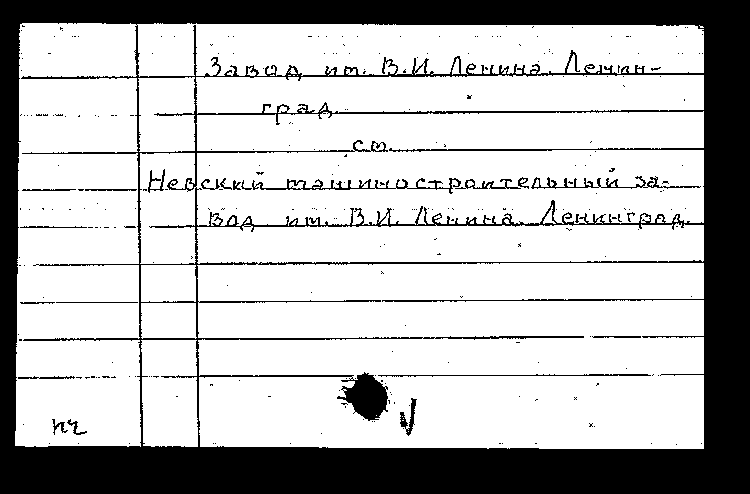 Завод им. В.И. Ленина. Ленин-
град.
см.
Невский машиностроительный за-
вод им. В.И. Ленина. Ленинград.